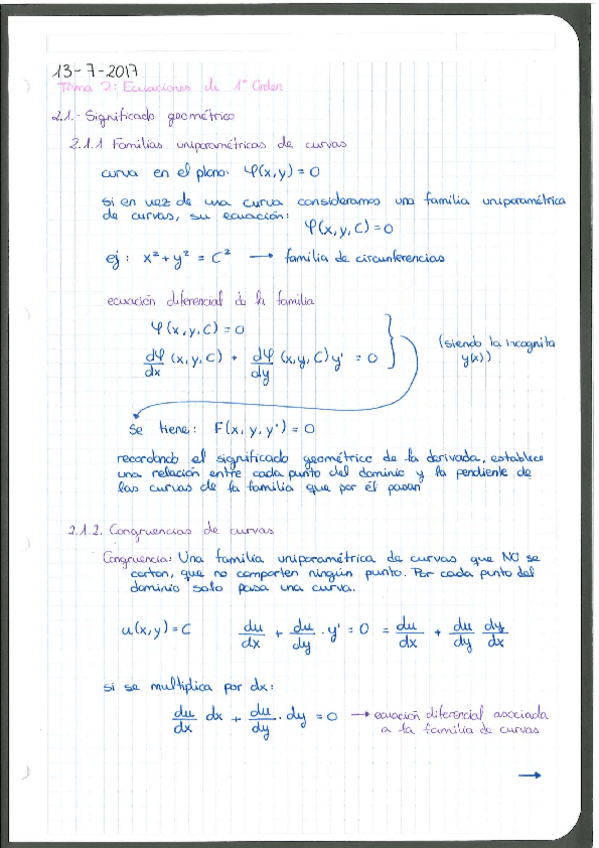 13-7-2017
Tema 2: Ecuaciones de 1º Orden
2.1.- Significado geométrico
2.1.1 Familias uniparamétricas de curvas
curva en el plano: φ(x,y)=0
si en vez de una curva consideramos una familia uniparamétrica
de curvas, su ecuación:
φ(x,y,C)=0
ej: x²+y²=C² → familia de circunferencias
ecuación diferencial de la familia
φ(x,y,C)=0
dφ/dx (x,y,C) + dφ/dy (x,y,C) y' = 0
(siendo la incognita
y(x))
se tiene: F(x,y,y')=0
recordando el significado geométrico de la derivada, establece
una relación entre cada punto del dominio y la pendiente de
las curvas de la familia que por él pasan
2.1.2. Congruencias de curvas
Congruencia: Una familia uniparamétrica de curvas que NO se
cortan, que no comparten ningún punto. Por cada punto del
dominio solo pasa una curva.
u(x,y)=C du/dx + du/dy · y' = 0 = du/dx + du/dy dy/dx
si se multiplica por dx:
du/dx dx + du/dy · dy = 0 → ecuación diferencial asociada
a la familia de curvas
→